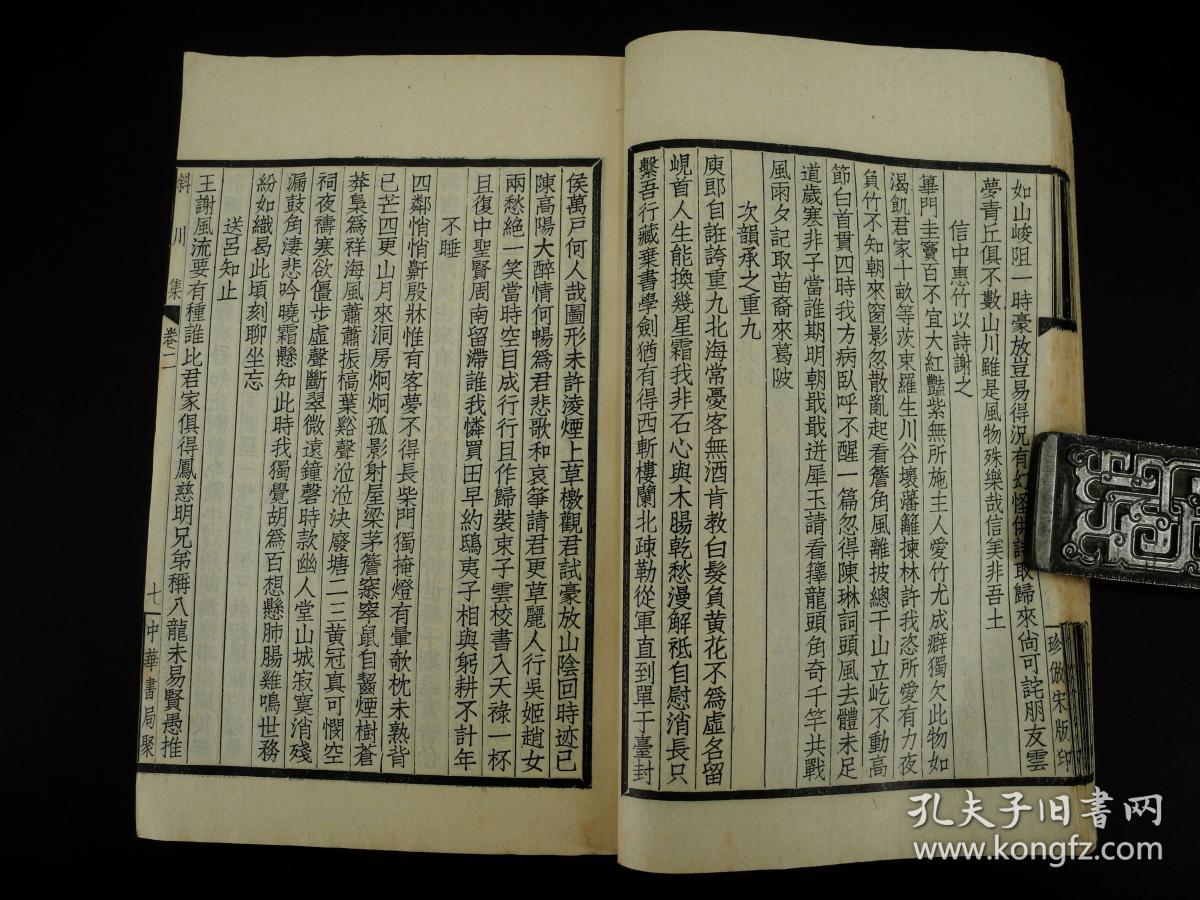 如山峻阻一時豪放豈易得況有幻怪供詩取歸來尙可詫朋友雲
夢青丘俱不數山川雖是風物殊樂哉信美非吾土
信中惠竹以詩謝之
蓽門圭竇百不宜大紅豔紫無所施主人愛竹尤成癖獨欠此物如
渴飢君家十畝等茨束羅生川谷壞藩籬揀林許我恣所愛有力夜
負竹不知朝來窗影忽散亂起看簷角風離披總干山立屹不動高
節白首貫四時我方病臥呼不醒一篇忽得陳琳詞頭風去體未足
道歲寒非子當誰期明朝戢戢迸犀玉請看籜龍頭角奇千竿共戰
風雨夕記取苗裔來葛陂
次韻承之重九
庾郎自誑誇重九北海常憂客無酒肯教白髮負黃花不爲虛名留
峴首人生能換幾星霜我非石心與木腸乾愁漫解祗自慰消長只
繫吾行藏棄書學劍猶有得西斬樓蘭北疎勒從軍直到單于臺封
珍倣宋版印
侯萬戶何人哉圖形未許淩煙上草檄觀君試豪放山陰回時迹已
陳高陽大醉情何暢爲君悲歌和哀箏請君更草麗人行吳姬趙女
兩愁絕一笑當時空目成行行且作歸裝束子雲校書入天祿一杯
且復中聖賢周南留滯誰我憐買田早約鴟夷子相與躬耕不計年
不睡
四鄰悄悄鼾殷牀惟有客夢不得長柴門獨掩燈有暈欹枕未熟背
已芒四更山月來洞房炯炯孤影射屋梁茅簷窸窣鼠自齧煙樹蒼
莽梟爲祥海風蕭蕭振槁葉谿聲㳫㳫決廢塘二三黃冠真可憫空
祠夜禱寒欲僵步虛聲斷翠微遠鐘磬時款幽人堂山城寂寞消殘
漏鼓角淒悲吟曉霜懸知此時我獨覺胡爲百想懸肺腸雞鳴世務
紛如織曷此頃刻聊坐忘
送呂知止
王謝風流要有種誰比君家俱得鳳慈明兄弟稱八龍未易賢愚推
斜川集 卷二 七 中華書局聚
孔夫子旧书网
www.kongfz.com